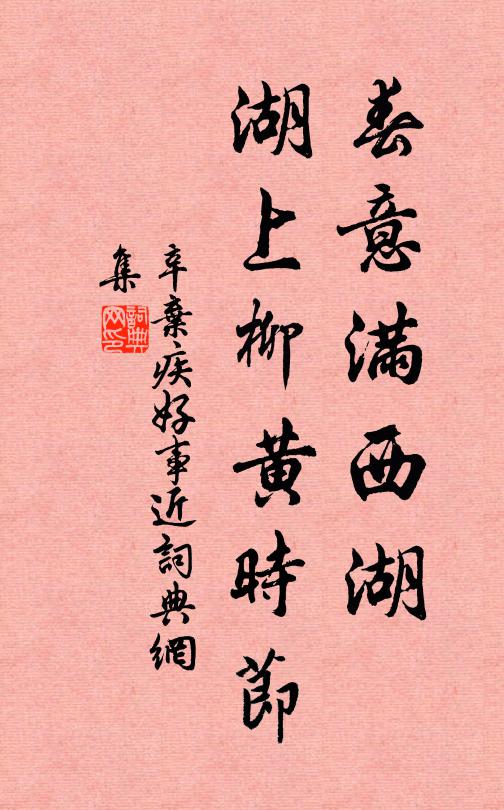 春意滿西湖
湖上柳黃時節
辛棄疾好事近詞典網
集
詞典網印